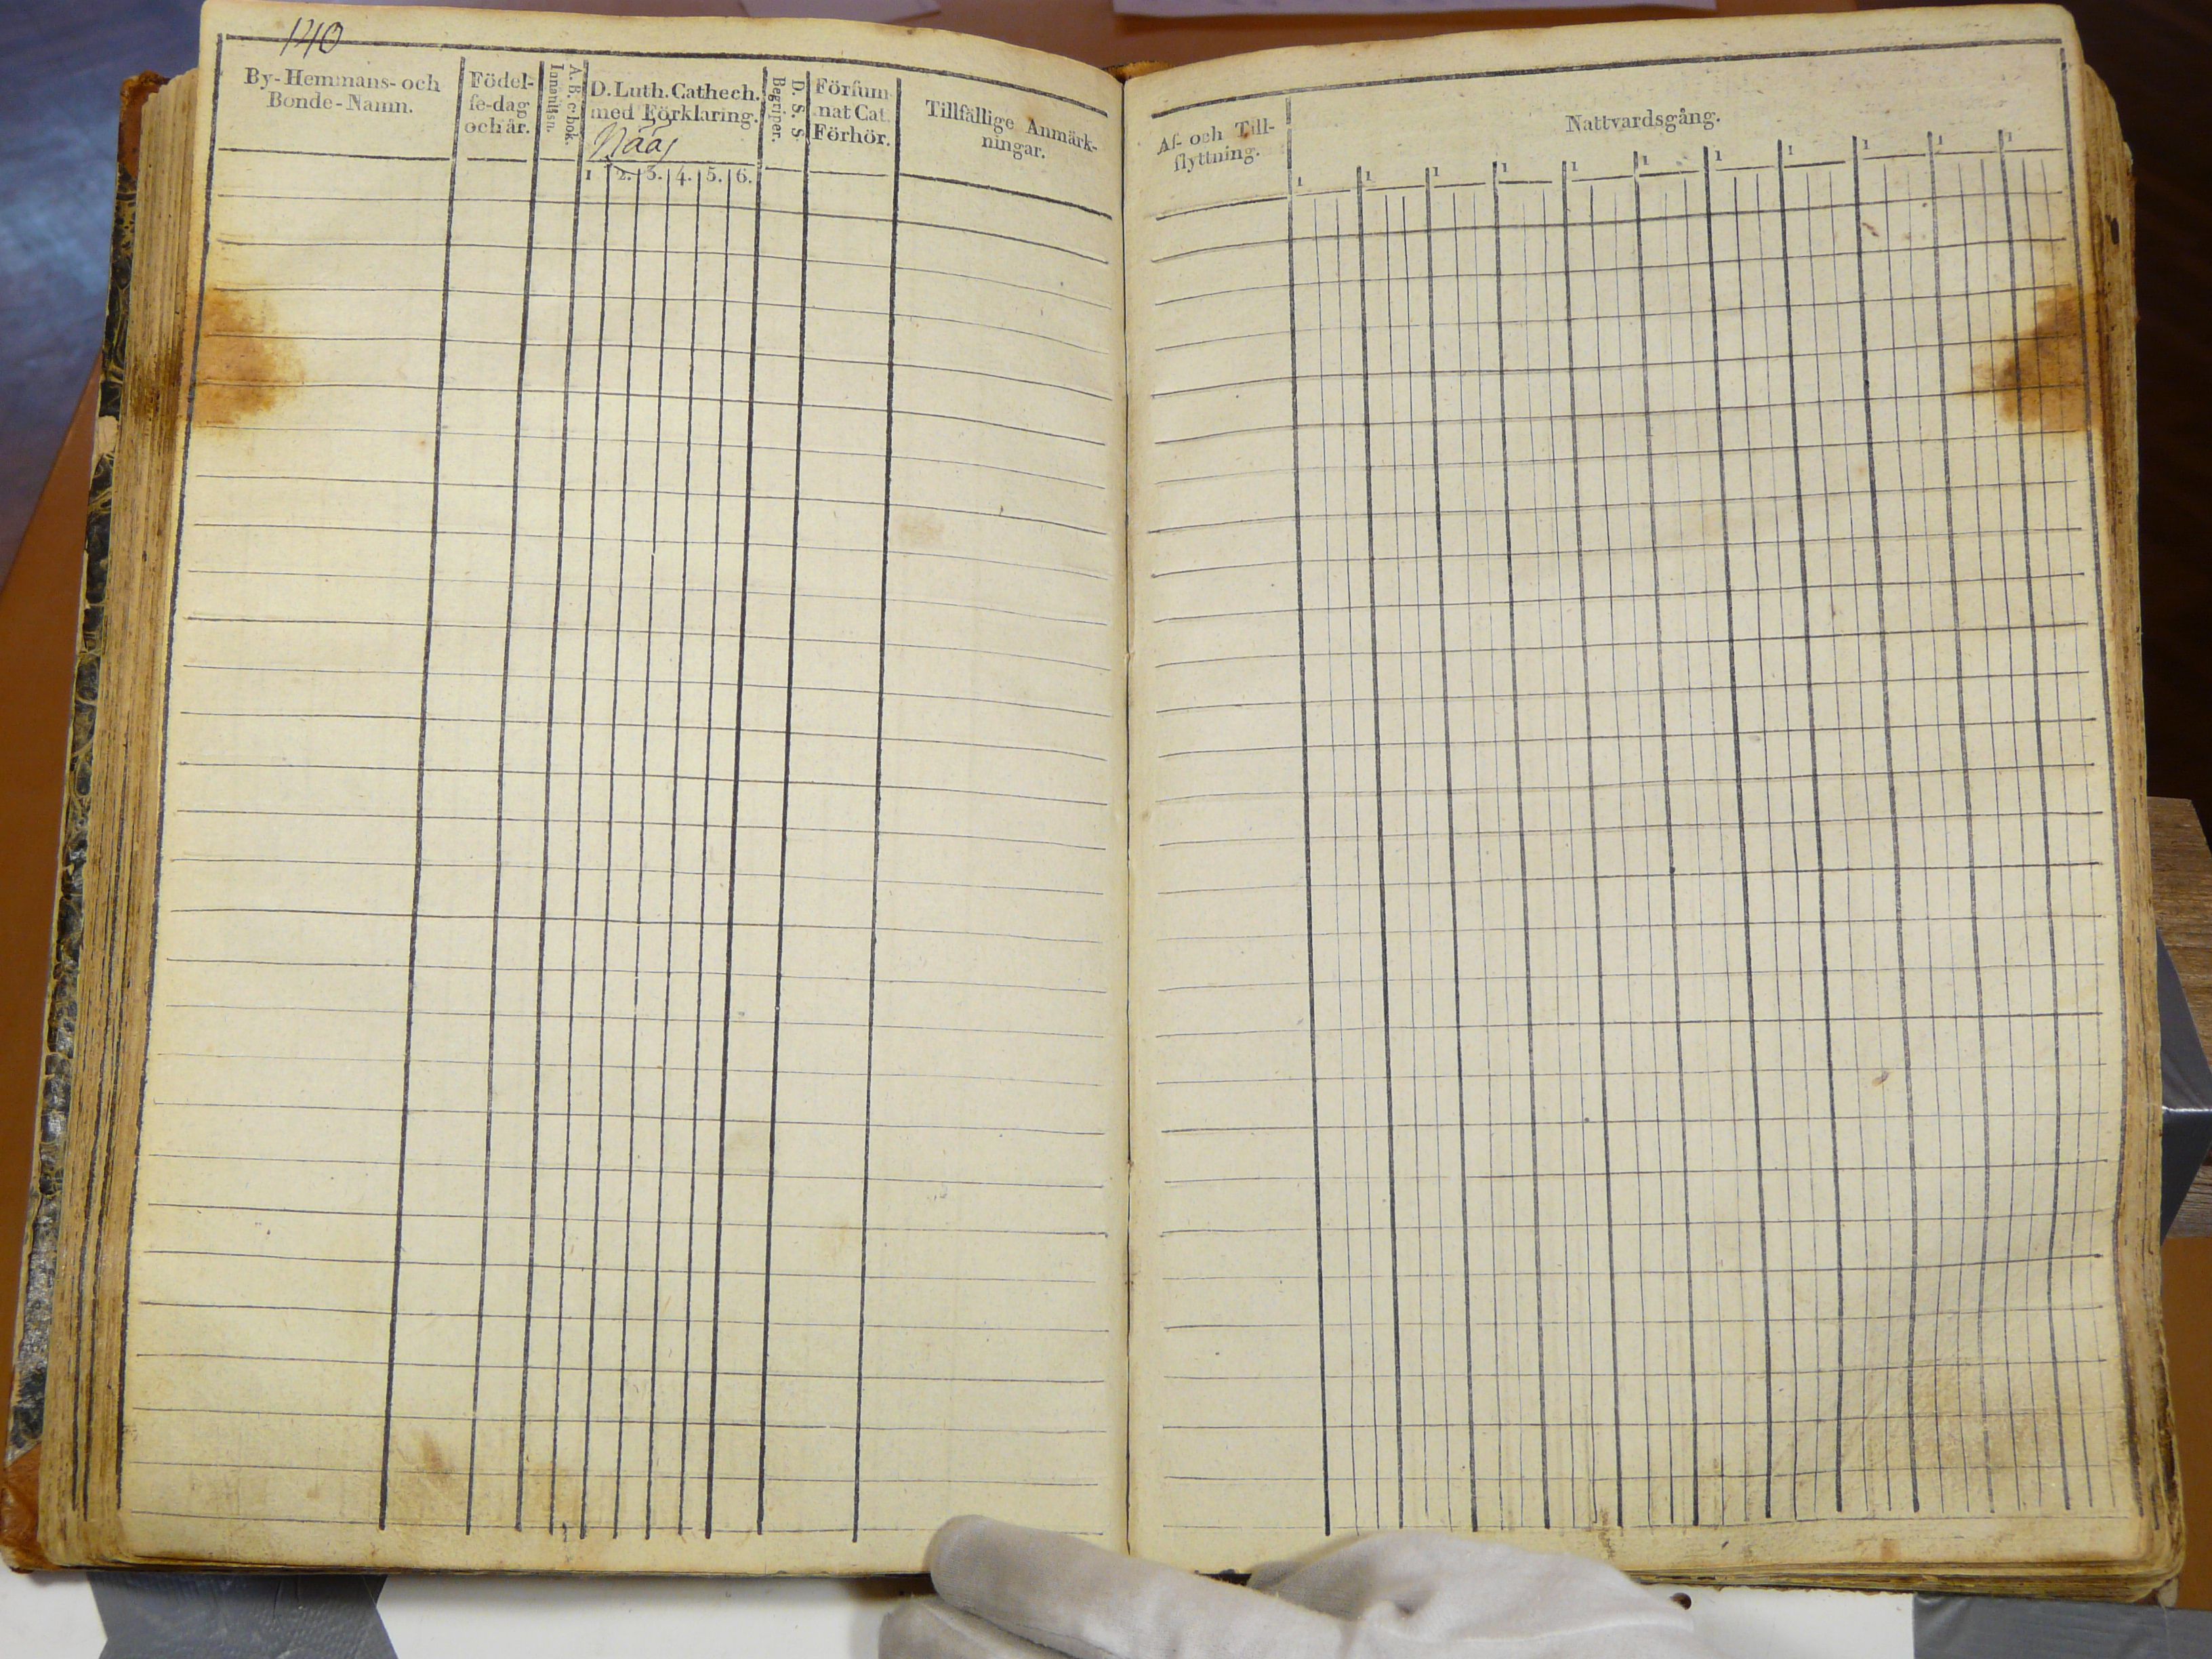 140
By-Hemmans- och
Bonde-Namn.
Födel-
ſe-dag
och år.
A. B. c-bok.
Innanläſn.
D. Luth. Cathech.
med Förklaring.
Nääs
1 2. 3. 4. 5. 6.
D. S. S.
Begriper.
Förſum-
nat Cat.
Förhör.
Tillfällige Anmärk-
ningar.
Af- och Till-
flyttning.
Nattvardsgång.
1 1 1 1 1 1 1 1 1 1 1